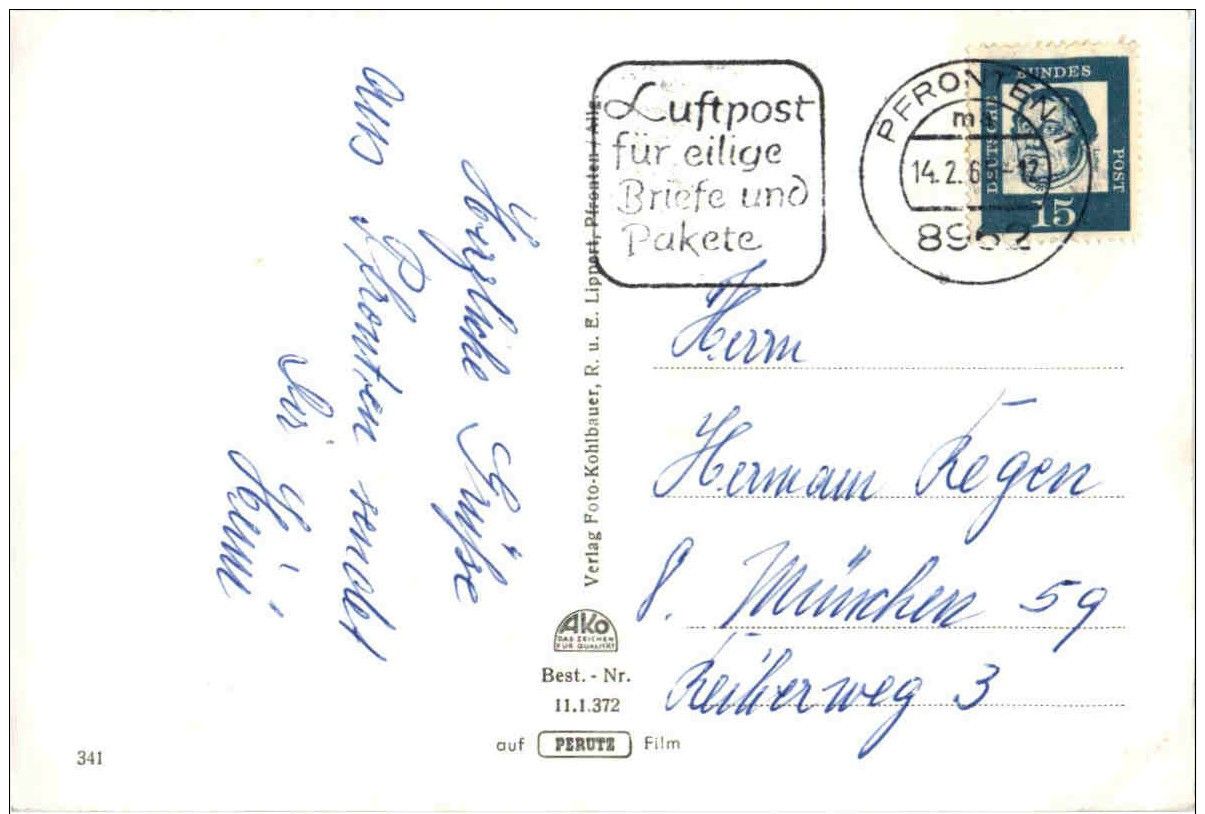 Herzliche Grüße
aus Pfronten sendet
dir
Luftpost
für eilige
Briefe und
Pakete
PFRONTEN 1
14.2.6
8962
DEUTSCHE BUNDES POST
15
Verlag Foto-Kohlbauer, R. u. E. Lippert, Pfronten / Allg.
Herrn
Hermann Regen
8. München 59
Reiherweg 3
AKO
DAS ZEICHEN
FÜR QUALITÄT
Best. - Nr.
11.1.372
auf PERUTZ Film
341